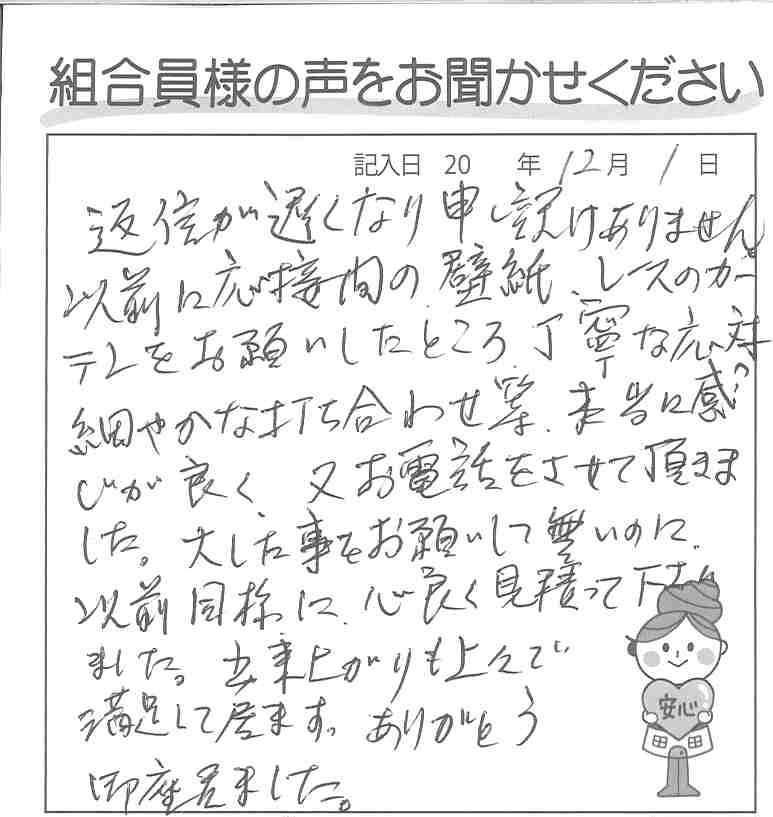 組合員様の声をお聞かせください
記入日 20 年 12月 1日
返信が遅くなり申し訳けありません。
以前に応接間の壁紙、レースのカー
テンをお願いしたところ丁寧な応対
細やかな打ち合わせ等、本当に感
じが良く、又お電話をさせて頂きま
した。大した事をお願いして無いのに、
以前同様に、心良く見積って下さり
ました。出来上がりも上々で
満足して居ます。ありがとう
御座居ました。
安心